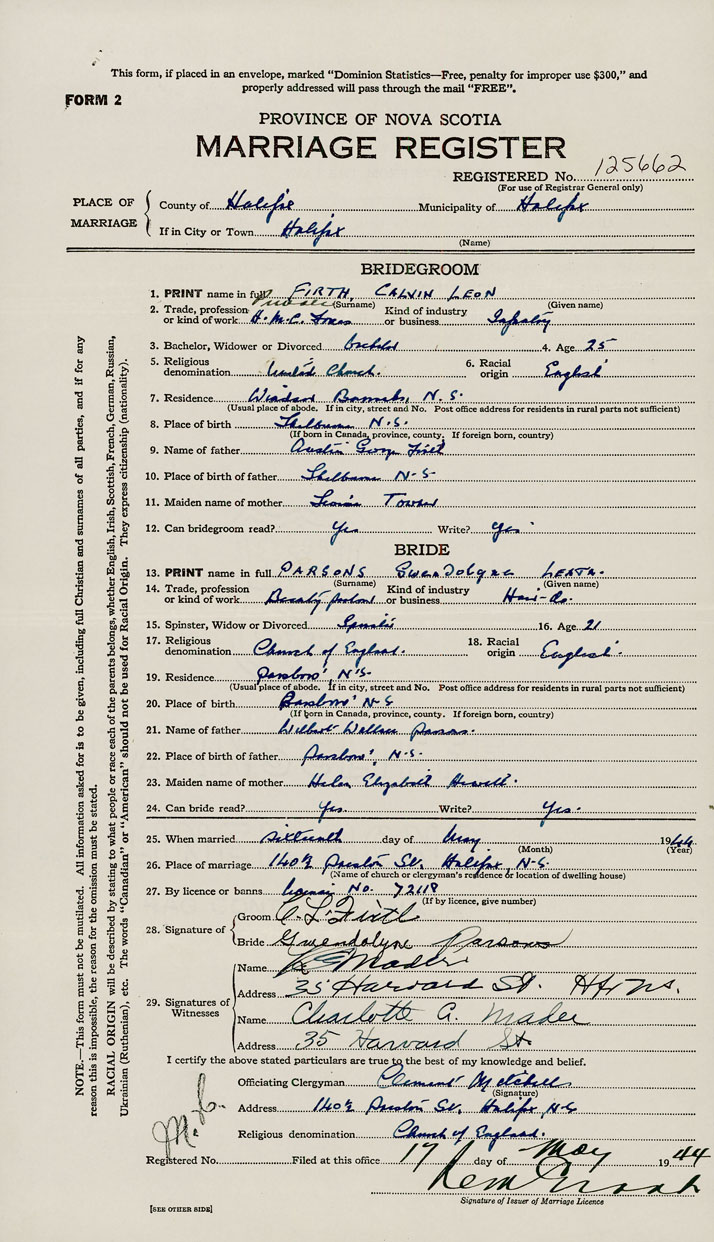 This form, if placed in an envelope, marked "Dominion Statistics—Free, penalty for improper use $300," and
properly addressed will pass through the mail "FREE".
FORM 2
PROVINCE OF NOVA SCOTIA
MARRIAGE REGISTER
REGISTERED No. 125662
(For use of Registrar General only)
PLACE OF MARRIAGE
County of Halifax Municipality of Halifax
If in City or Town Halifax
(Name)
BRIDEGROOM
1. PRINT name in full FIRTH, CALVIN LEON
(Surname) (Given name)
2. Trade, profession or kind of work Private H.M.C. Forces Kind of industry or business Infantry
3. Bachelor, Widower or Divorced Bachelor 4. Age 25
5. Religious denomination United Church. 6. Racial origin English
7. Residence Windsor Barracks, N.S.
(Usual place of abode. If in city, street and No. Post office address for residents in rural parts not sufficient)
8. Place of birth Shelburne N.S.
(If born in Canada, province, county. If foreign born, country)
9. Name of father Austin George Firth
10. Place of birth of father Shelburne N-S-
11. Maiden name of mother
12. Can bridegroom read? Yes Write? Yes
BRIDE
13. PRINT name in full PARSONS Gwendolyne LEATA.
(Surname) (Given name)
14. Trade, profession or kind of work Beauty parlor Kind of industry or business Hair-do.
15. Spinster, Widow or Divorced Spinster 16. Age 21
17. Religious denomination Church of England. 18. Racial origin English.
19. Residence Parrsboro' N'S.
(Usual place of abode. If in city, street and No. Post office address for residents in rural parts not sufficient)
20. Place of birth Parrsboro' N-S
(If born in Canada, province, county. If foreign born, country)
21. Name of father Wilbert Wallace Parsons.
22. Place of birth of father Parrsboro', N-S.
23. Maiden name of mother Helen Elizabeth
24. Can bride read? Yes. Write? Yes.
25. When married sixteenth day of May 1944
(Month) (Year)
26. Place of marriage 140½ Preston St. Halifax, N-S.
(Name of church or clergyman's residence or location of dwelling house)
27. By licence or banns license No. 72118
(If by licence, give number)
28. Signature of
Groom C. L. Firth
Bride Gwendolyne Parsons
29. Signatures of Witnesses
Name Mader
Address 35 Harvard St. Hfx N.S.
Name Charlotte A. Mader
Address 35 Harvard St.
I certify the above stated particulars are true to the best of my knowledge and belief.
Officiating Clergyman Clement Mitchell
(Signature)
Address 140½ Preston St. Halifax, N-S
Religious denomination Church of England.
Registered No. Filed at this office 17 day of May 1944
Signature of Issuer of Marriage Licence
[SEE OTHER SIDE]
NOTE.—This form must not be mutilated. All information asked for is to be given, including full Christian and surnames of all parties, and if for any
reason this is impossible, the reason for the omission must be stated.
RACIAL ORIGIN will be described by stating to what people or race each of the parents belongs, whether English, Irish, Scottish, French, German, Russian,
Ukrainian (Ruthenian), etc. The words "Canadian" or "American" should not be used for Racial Origin. They express citizenship (nationality).